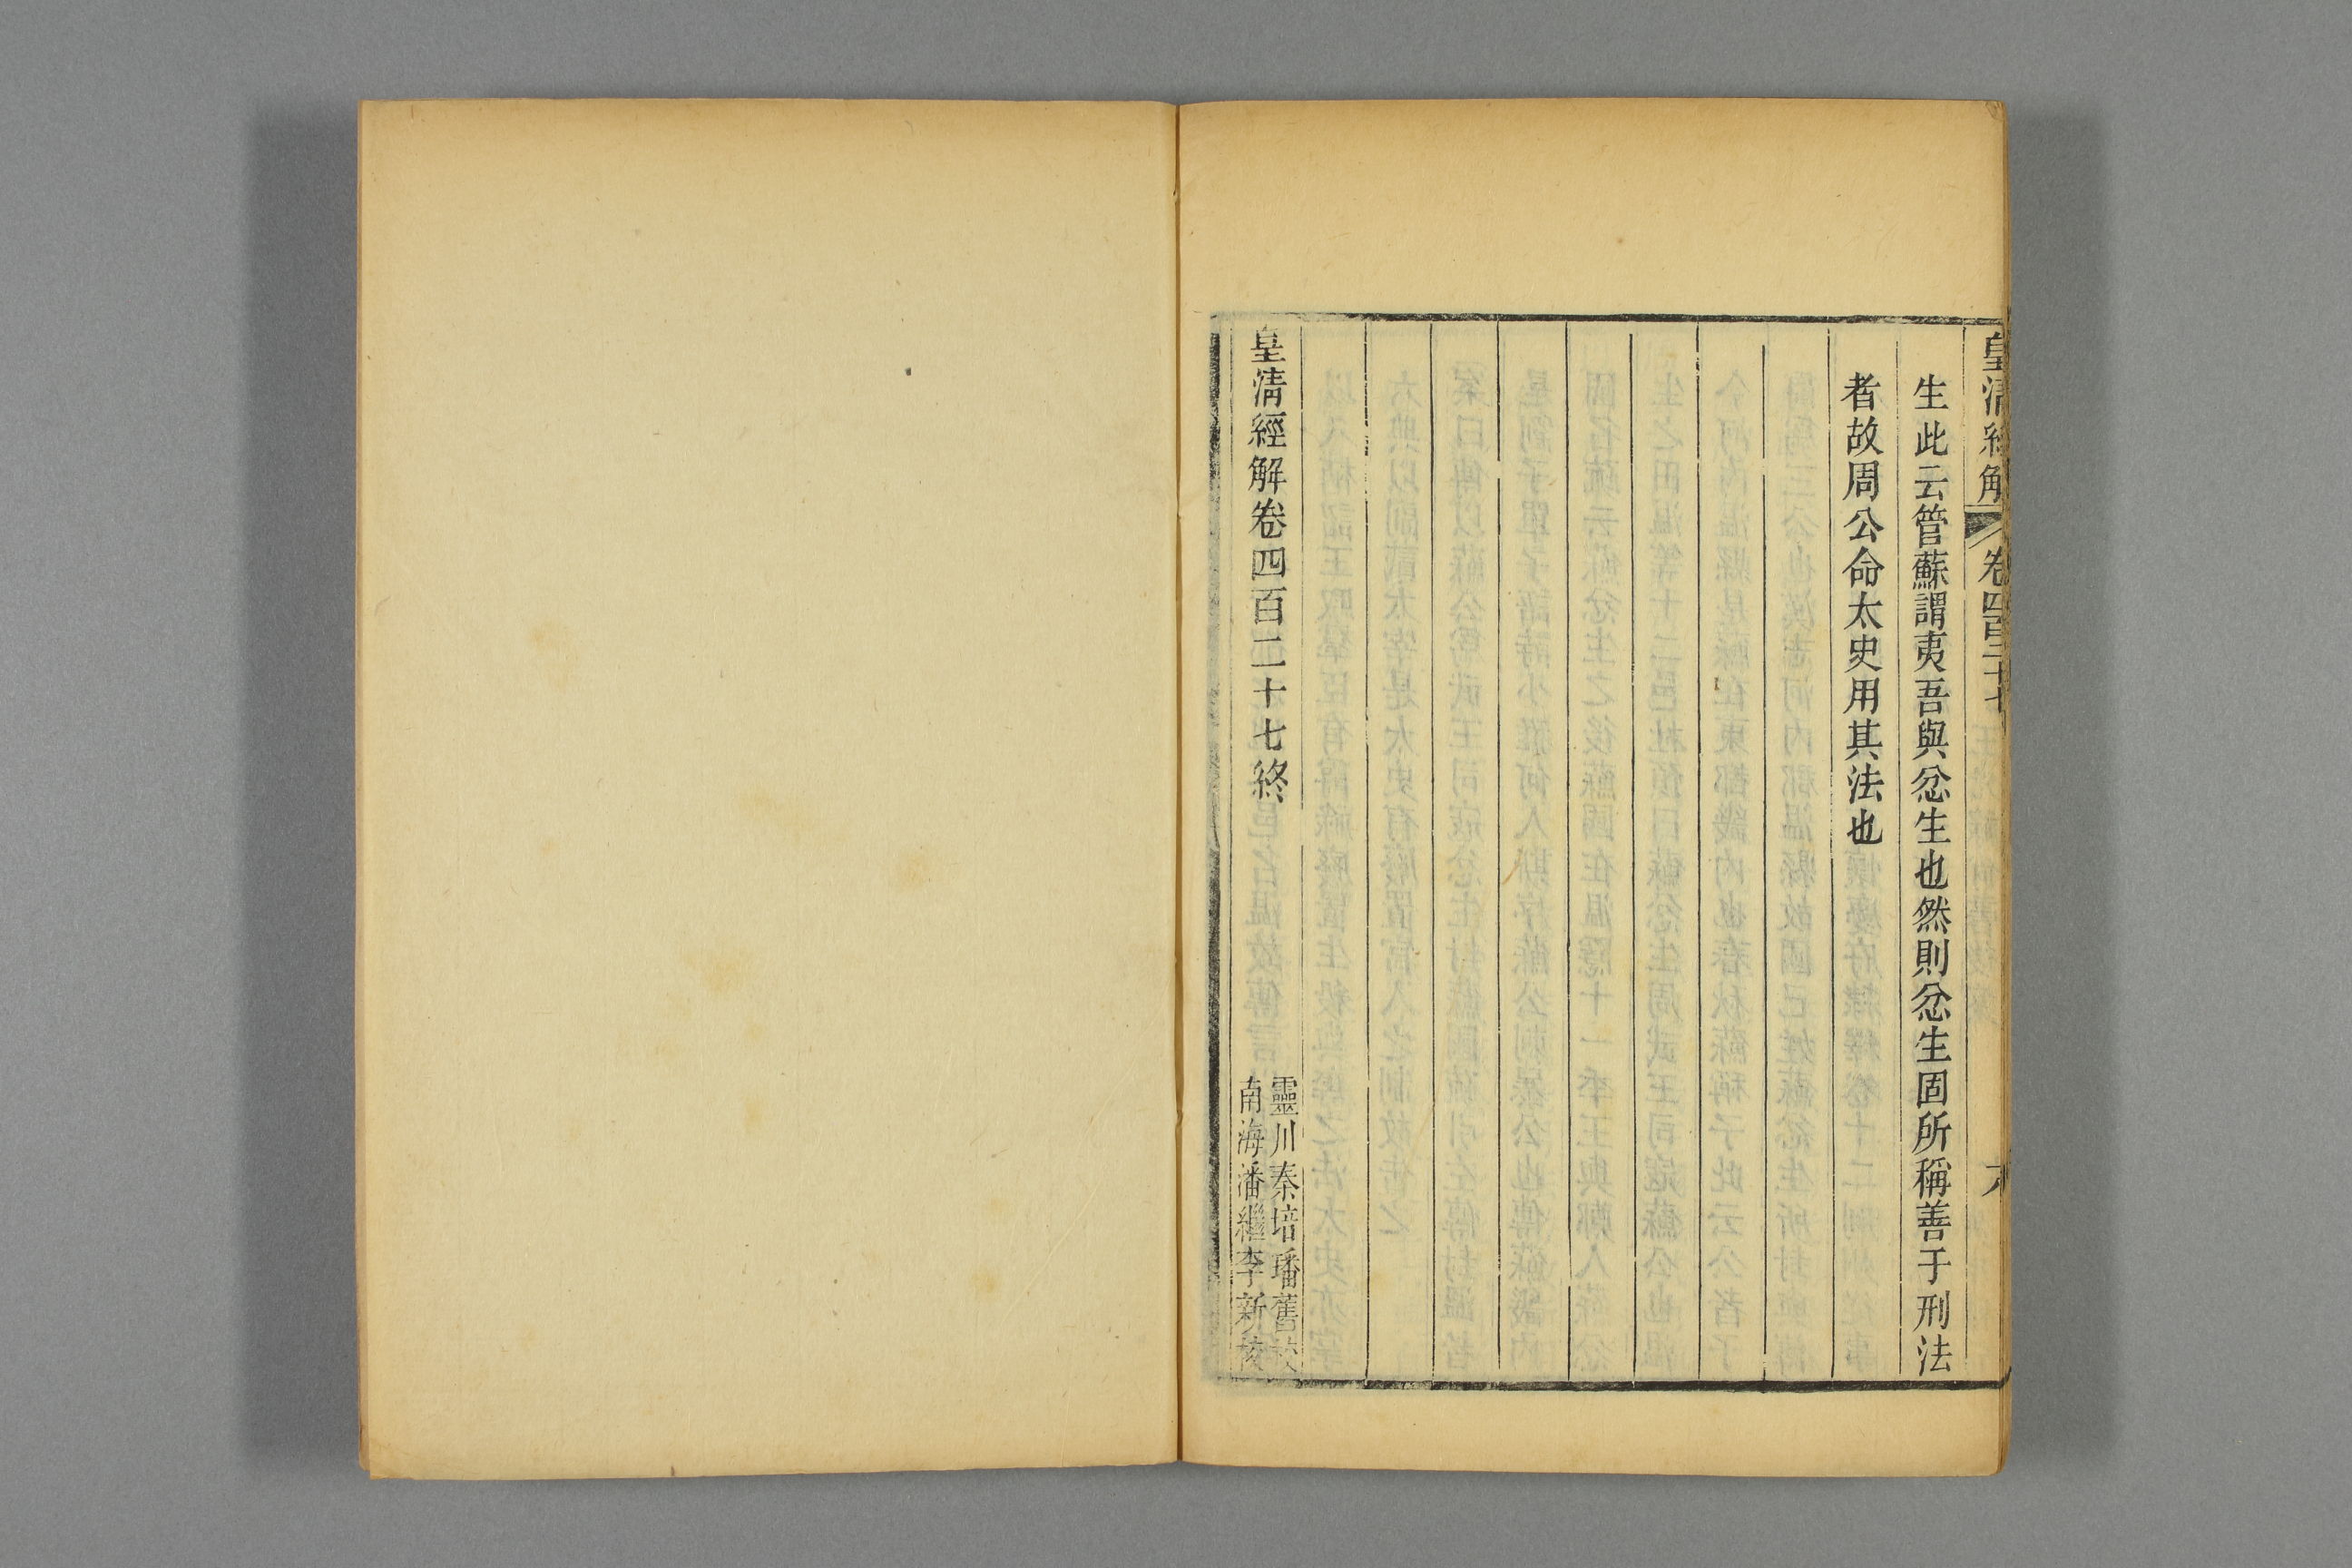 皇清經解 卷四百二十七 六
生此云管蘇謂夷吾與忿生也然則忿生固所稱善于刑法
者故周公命太史用其法也
皇清經解卷四百二十七終
靈川秦培璠舊校
南海潘繼李新校